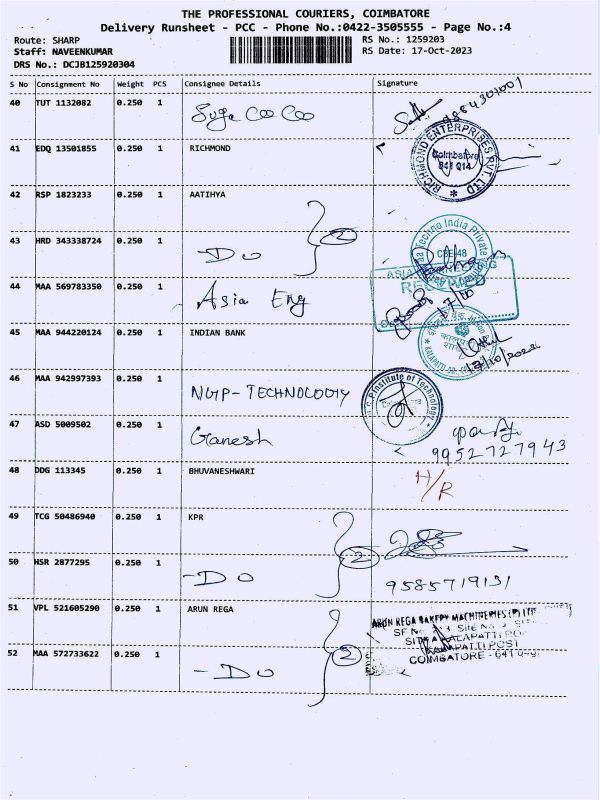 THE PROFESSIONAL COURIERS, COIMBATORE
Delivery Runsheet - PCC - Phone No.:0422-3505555 - Page No.:4
Route: SHARP
RS No.: 1259203
Staff: NAVEENKUMAR
RS Date: 17-Oct-2023
DRS No.: DCJB125920304
S No Consignment No Weight PCS Consignee Details Signature
40 TUT 1132082 0.250 1
41 EDQ 13501855 0.250 1 RICHMOND
RICHMOND ENTERPRISES PVT. LTD
Coimbatore
641 014
42 RSP 1823233 0.250 1 AATIHYA
2
43 HRD 343338724 0.250 1 - DO
Techno India Private
CBE-48
44 MAA 569783350 0.250 1 Asia Eng
17/10
45 MAA 944220124 0.250 1 INDIAN BANK
17/10/2023
46 MAA 942997393 0.250 1 NGP-TECHNOLOGY
Institute of Technology
47 ASD 5009502 0.250 1 Ganesh
9952727943
48 DDG 113345 0.250 1 BHUVANESHWARI H/R
49 TCG 50486940 0.250 1 KPR
2
50 HSR 2877295 0.250 1 - DO
9585719131
51 VPL 521605290 0.250 1 ARUN REGA
ARUN REGA BAKERY MACHINERIES (P) LTD
52 MAA 572733622 0.250 1 - DO 2
KALAPATTI POST
COIMBATORE - 641